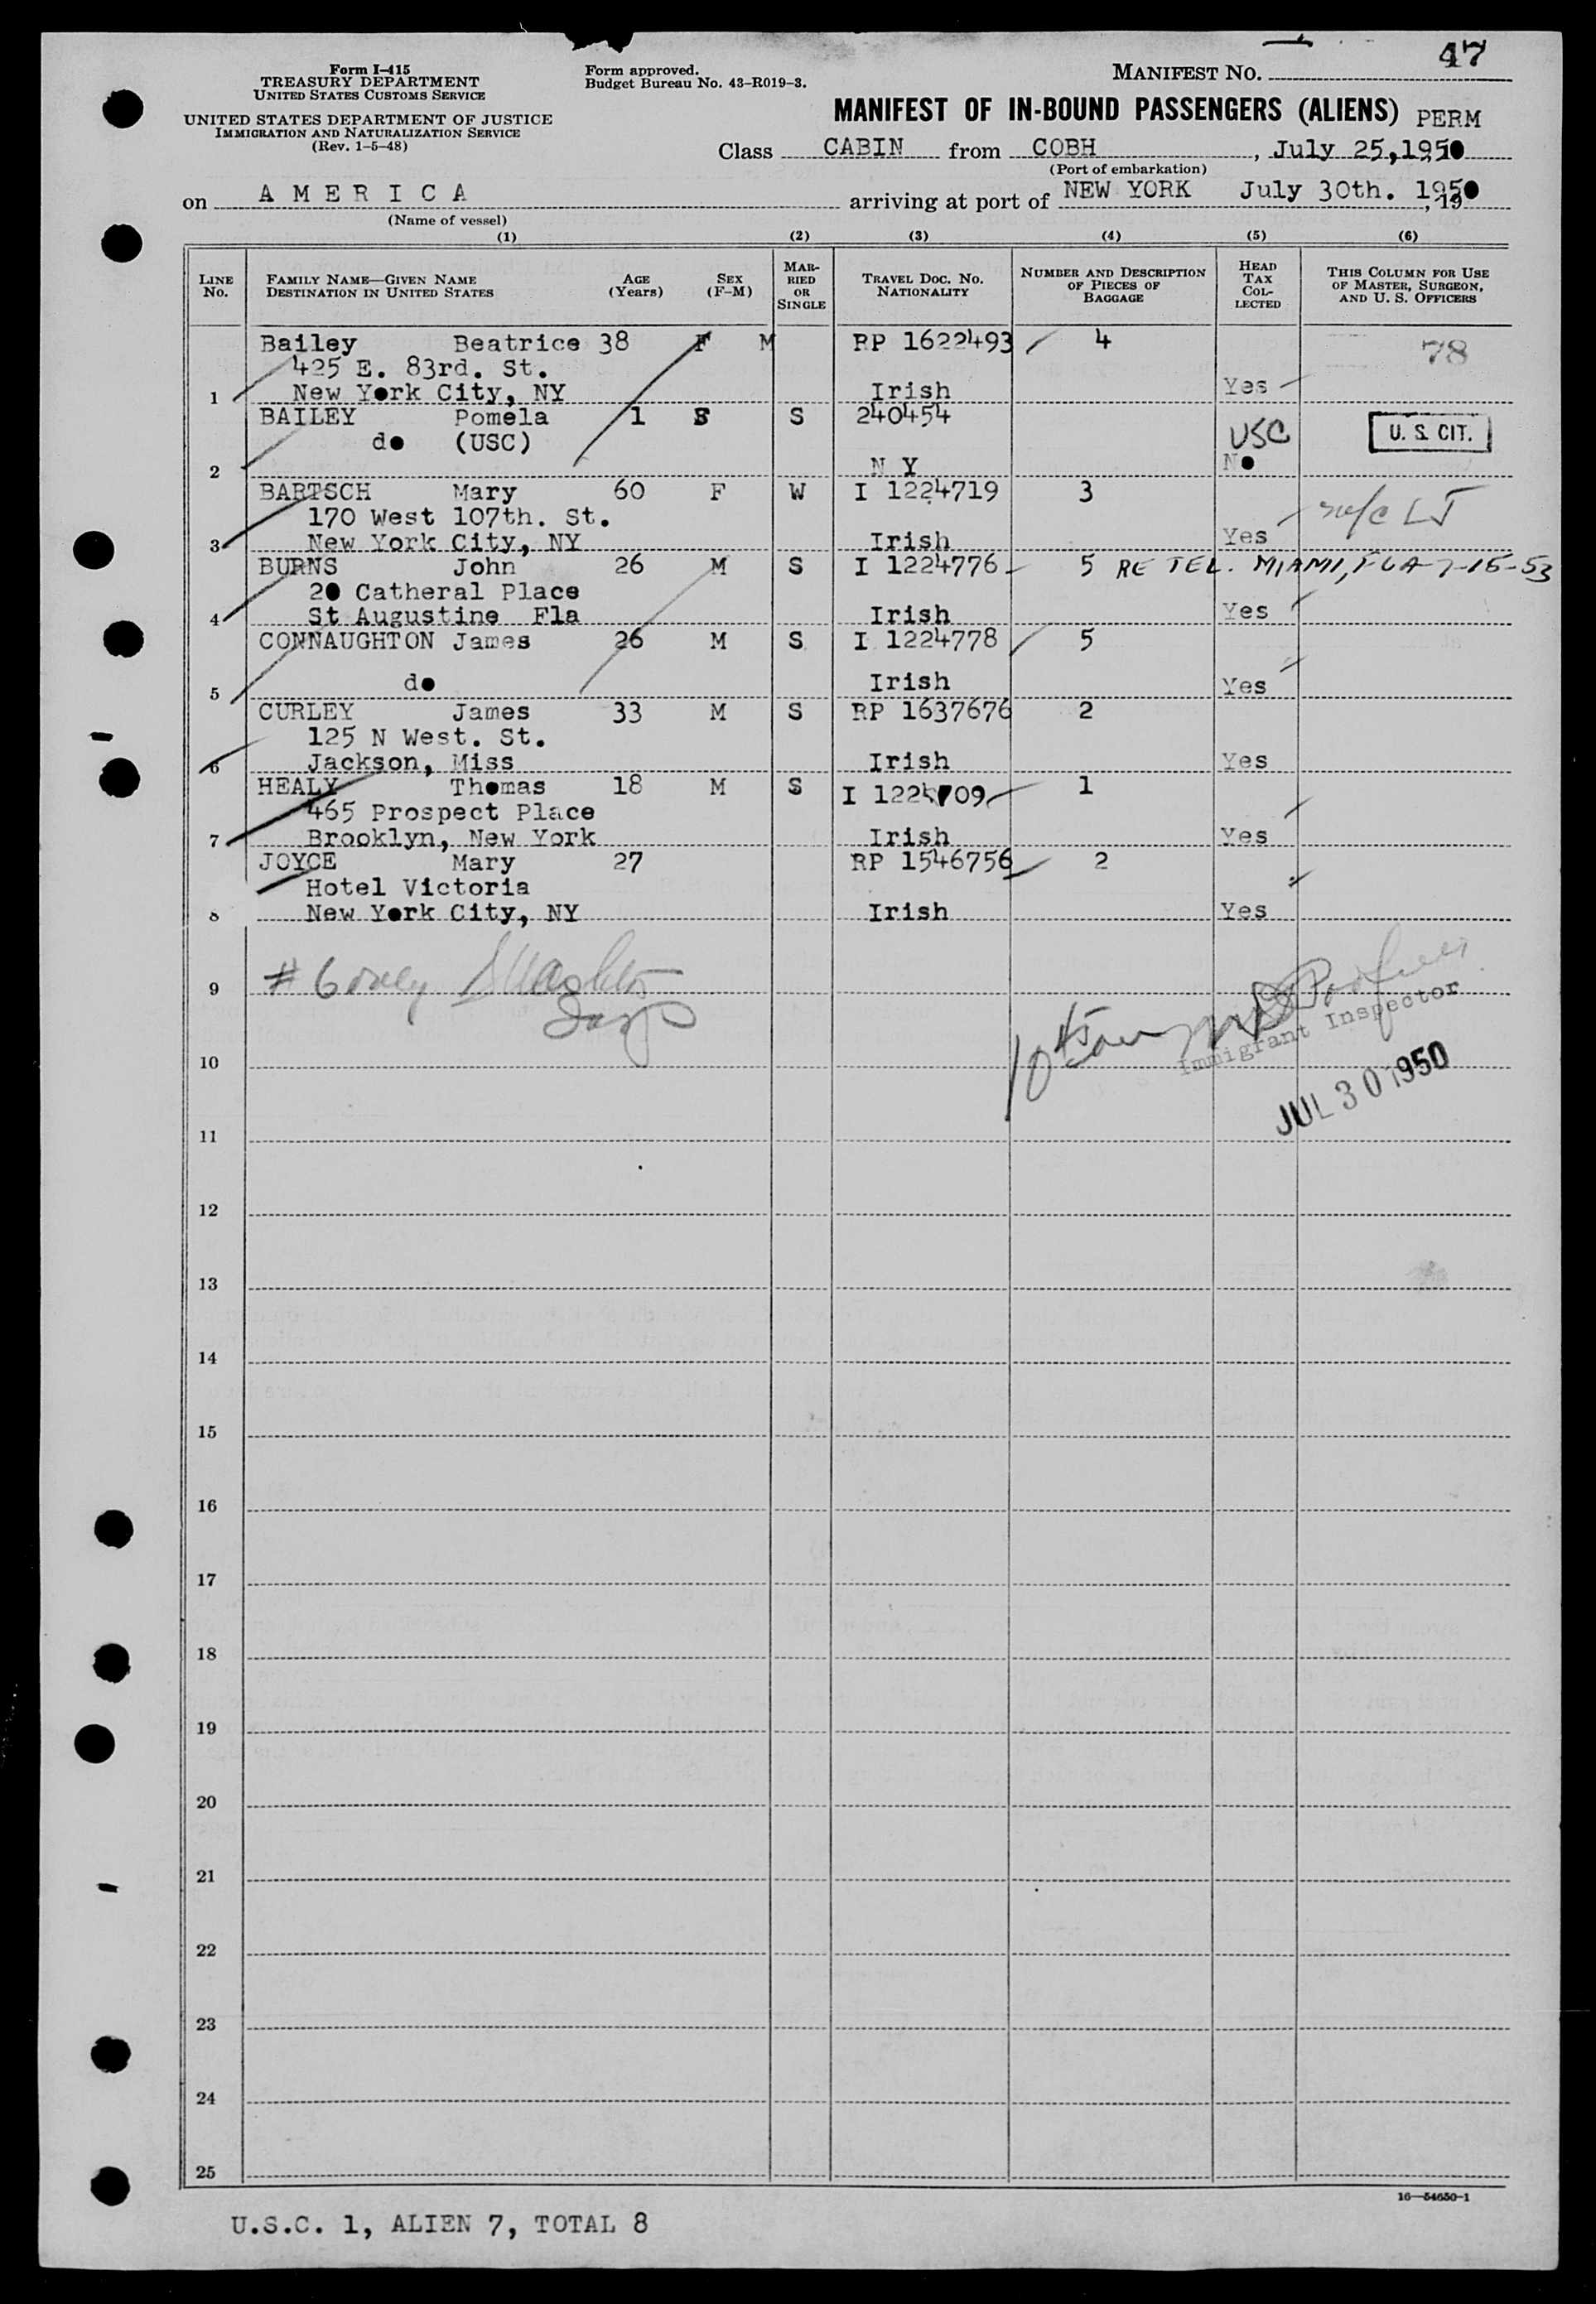 47
Form I-415
TREASURY DEPARTMENT
UNITED STATES CUSTOMS SERVICE
UNITED STATES DEPARTMENT OF JUSTICE
IMMIGRATION AND NATURALIZATION SERVICE
(Rev. 1-5-48)
Form approved.
Budget Bureau No. 43-R019-3.
MANIFEST NO.
MANIFEST OF IN-BOUND PASSENGERS (ALIENS) PERM
Class CABIN from COBH, July 25, 1950
(Port of embarkation)
on AMERICA arriving at port of NEW YORK July 30th. 1950
(Name of vessel)
(1) (2) (3) (4) (5) (6)
LINE NO.
FAMILY NAME—GIVEN NAME
DESTINATION IN UNITED STATES
AGE (Years)
SEX (F-M)
MARRIED OR SINGLE
TRAVEL DOC. NO.
NATIONALITY
NUMBER AND DESCRIPTION
OF PIECES OF
BAGGAGE
HEAD TAX COLLECTED
THIS COLUMN FOR USE
OF MASTER, SURGEON,
AND U. S. OFFICERS
Bailey Beatrice 38 F M RP 1622493 4 78
425 E. 83rd. St.
1 New York City, NY Irish Yes
BAILEY Pomela 1 S 240454 USC U. S. CIT.
do (USC)
2 N Y No
BARTSCH Mary 60 F W I 1224719 3
170 West 107th. St.
3 New York City, NY Irish Yes
BURNS John 26 M S I 1224776 5 RE TEL. MIAMI, FLA-7-15-53
20 Catheral Place
4 St Augustine Fla Irish Yes
CONNAUGHTON James 26 M S I 1224778 5
5 do Irish Yes
CURLEY James 33 M S RP 1637676 2
125 N West. St.
6 Jackson, Miss Irish Yes
HEALY Thomas 18 M S 1
465 Prospect Place
7 Brooklyn, New York Irish Yes
JOYCE Mary 27 RP 1546756 2
Hotel Victoria
8 New York City, NY Irish Yes
9 # 6 only
Immigrant Inspector
10
JUL 30 1950
11
12
13
14
15
16
17
18
19
20
21
22
23
24
25
16—54650-1
U.S.C. 1, ALIEN 7, TOTAL 8